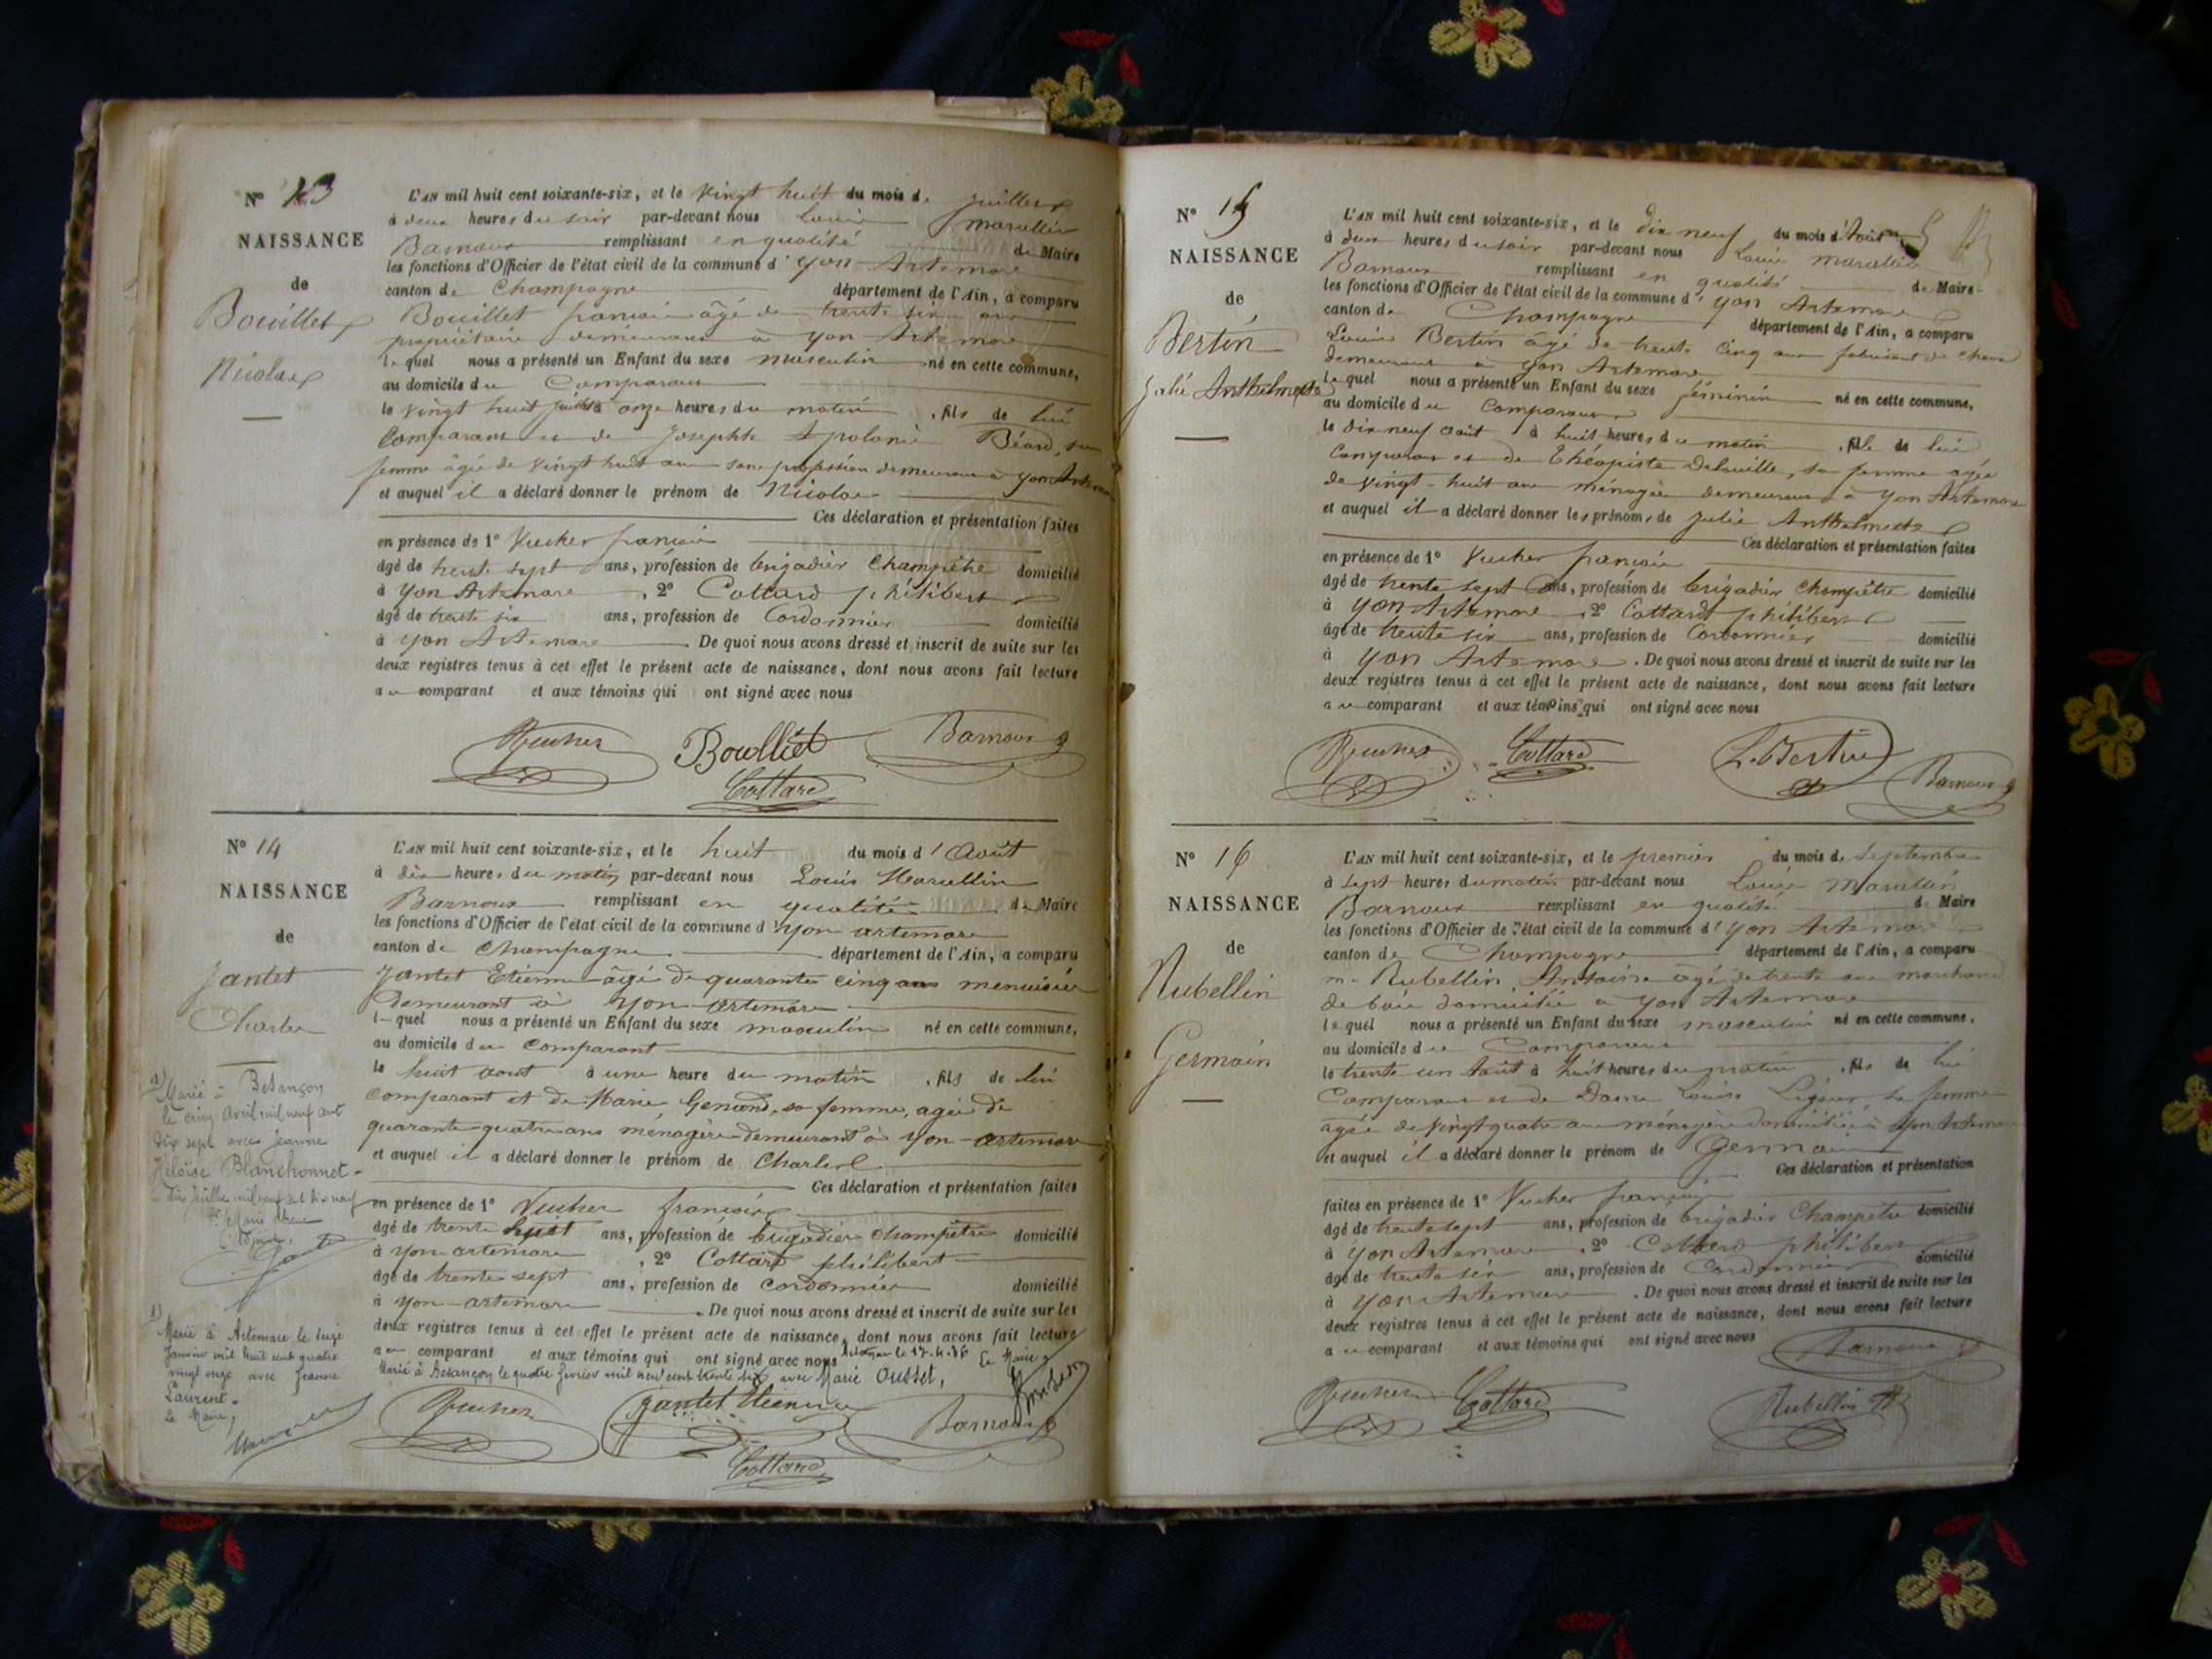 N° 13
NAISSANCE
de
Bouillet
Nicolas
L'AN mil huit cent soixante-six, et le vingt huit du mois de juillet
à deux heures du soir par-devant nous Louis Marcellin
Barnoux remplissant en qualité de Maire
les fonctions d'Officier de l'état civil de la commune d'Yon Artemare
canton de Champagne département de l'Ain, a comparu
Bouillet françois âgé de trente six ans
propriétaire demeurant à yon Artemare
lequel nous a présenté un Enfant du sexe masculin né en cette commune,
au domicile du Comparant
le vingt huit juillet à onze heures du matin, fils de lui
Comparant et de Josephte Apolonie Béard, sa
femme âgée de vingt huit ans sans profession demeurant à yon Artemare
et auquel il a déclaré donner le prénom de Nicolas
Ces déclaration et présentation faites
en présence de 1° Vucher françois
âgé de trente sept ans, profession de brigadier Champêtre domicilié
à yon Artemare, 2° Cottard philibert
âgé de trente six ans, profession de Cordonnier domicilié
à yon Artemare De quoi nous avons dressé et inscrit de suite sur les
deux registres tenus à cet effet le présent acte de naissance, dont nous avons fait lecture
au comparant et aux témoins qui ont signé avec nous
Vucher Bouilliet Barnoux
Cottard
N° 14
NAISSANCE
de
Jantet
Charles
L'AN mil huit cent soixante-six, et le huit du mois d'Août
à dix heures du matin par-devant nous Louis Marcellin
Barnoux remplissant en qualité de Maire
les fonctions d'Officier de l'état civil de la commune d'yon artemare
canton de Champagne département de l'Ain, a comparu
Jantet Etienne âgé de quarante cinq ans menuisier
demeurant à Yon-artemare
lequel nous a présenté un Enfant du sexe masculin né en cette commune,
au domicile du comparant
le huit aout à une heure du matin, fils de lui
comparant et de Marie, sa femme, agée de
quarante-quatre ans ménagère demeurant à yon-artemare
et auquel il a déclaré donner le prénom de Charles
Ces déclaration et présentation faites
en présence de 1° Vucher françois
âgé de trente huit ans, profession de brigadier champêtre domicilié
à yon-artemare, 2° Cottard philibert
âgé de trente sept ans, profession de cordonnier domicilié
à yon-artemare. De quoi nous avons dressé et inscrit de suite sur les
deux registres tenus à cet effet le présent acte de naissance, dont nous avons fait lecture
au comparant et aux témoins qui ont signé avec nous
Marié à Besançon le quatre février mil neuf cent trente six avec Marie Ousset,
Le Maire
Vucher Jantet Etienne Barnoux
Cottard
2) Marié à Besançon
le cinq avril mil neuf cent
dix sept avec Jeanne
Héloïse Blanchonnet
1) Marié à Artemare le
Janvier mil huit cent quatre
vingt onze avec Jeanne
Laurent.
Le Maire,
N° 15
NAISSANCE
de
Bertin
Julie Anthelmette
L'AN mil huit cent soixante-six, et le dix neuf du mois d'Août
à deux heures du soir par-devant nous Louis Marcellin
Barnoux remplissant en qualité de Maire
les fonctions d'Officier de l'état civil de la commune d'yon Artemare
canton de Champagne département de l'Ain, a comparu
Louis Bertin âgé de trente cinq ans fabricant de
demeurant à yon Artemare
lequel nous a présenté un Enfant du sexe féminin né en cette commune,
au domicile du Comparant
le dix neuf août à huit heures du matin, fille de lui
Comparant et de Théopiste Delouille, sa femme agée
de vingt-huit ans ménagère demeurant à yon Artemare
et auquel il a déclaré donner les prénoms de Julie Anthelmette
Ces déclaration et présentation faites
en présence de 1° Vucher françois
âgé de trente sept ans, profession de brigadier Champêtre domicilié
à yon Artemare, 2° Cottard philibert
âgé de trente six ans, profession de Cordonnier domicilié
à yon Artemare. De quoi nous avons dressé et inscrit de suite sur les
deux registres tenus à cet effet le présent acte de naissance, dont nous avons fait lecture
au comparant et aux témoins qui ont signé avec nous
Vucher Cottard L. Bertin Barnoux
N° 16
NAISSANCE
de
Rubellin
Germain
L'AN mil huit cent soixante-six, et le premier du mois de Septembre
à sept heures du matin par-devant nous Louis Marcellin
Barnoux remplissant en qualité de Maire
les fonctions d'Officier de l'état civil de la commune d'yon Artemare
canton de Champagne département de l'Ain, a comparu
Mr Rubellin Antoine âgé de trente ans marchand
de bois domicilié à yon Artemare
lequel nous a présenté un Enfant du sexe masculin né en cette commune,
au domicile du Comparant
le trente un Août à huit heures du matin, fils de lui
Comparant et de Dame Louise sa femme
agée de vingt quatre ans ménagère domiciliée à yon Artemare
et auquel il a déclaré donner le prénom de Germain
Ces déclaration et présentation
faites en présence de 1° Vucher françois
âgé de trente sept ans, profession de brigadier Champêtre domicilié
à yon Artemare, 2° Cottard philibert
âgé de trente six ans, profession de Cordonnier domicilié
à yon Artemare. De quoi nous avons dressé et inscrit de suite sur les
deux registres tenus à cet effet le présent acte de naissance, dont nous avons fait lecture
au comparant et aux témoins qui ont signé avec nous
Barnoux
Vucher Cottard Rubellin